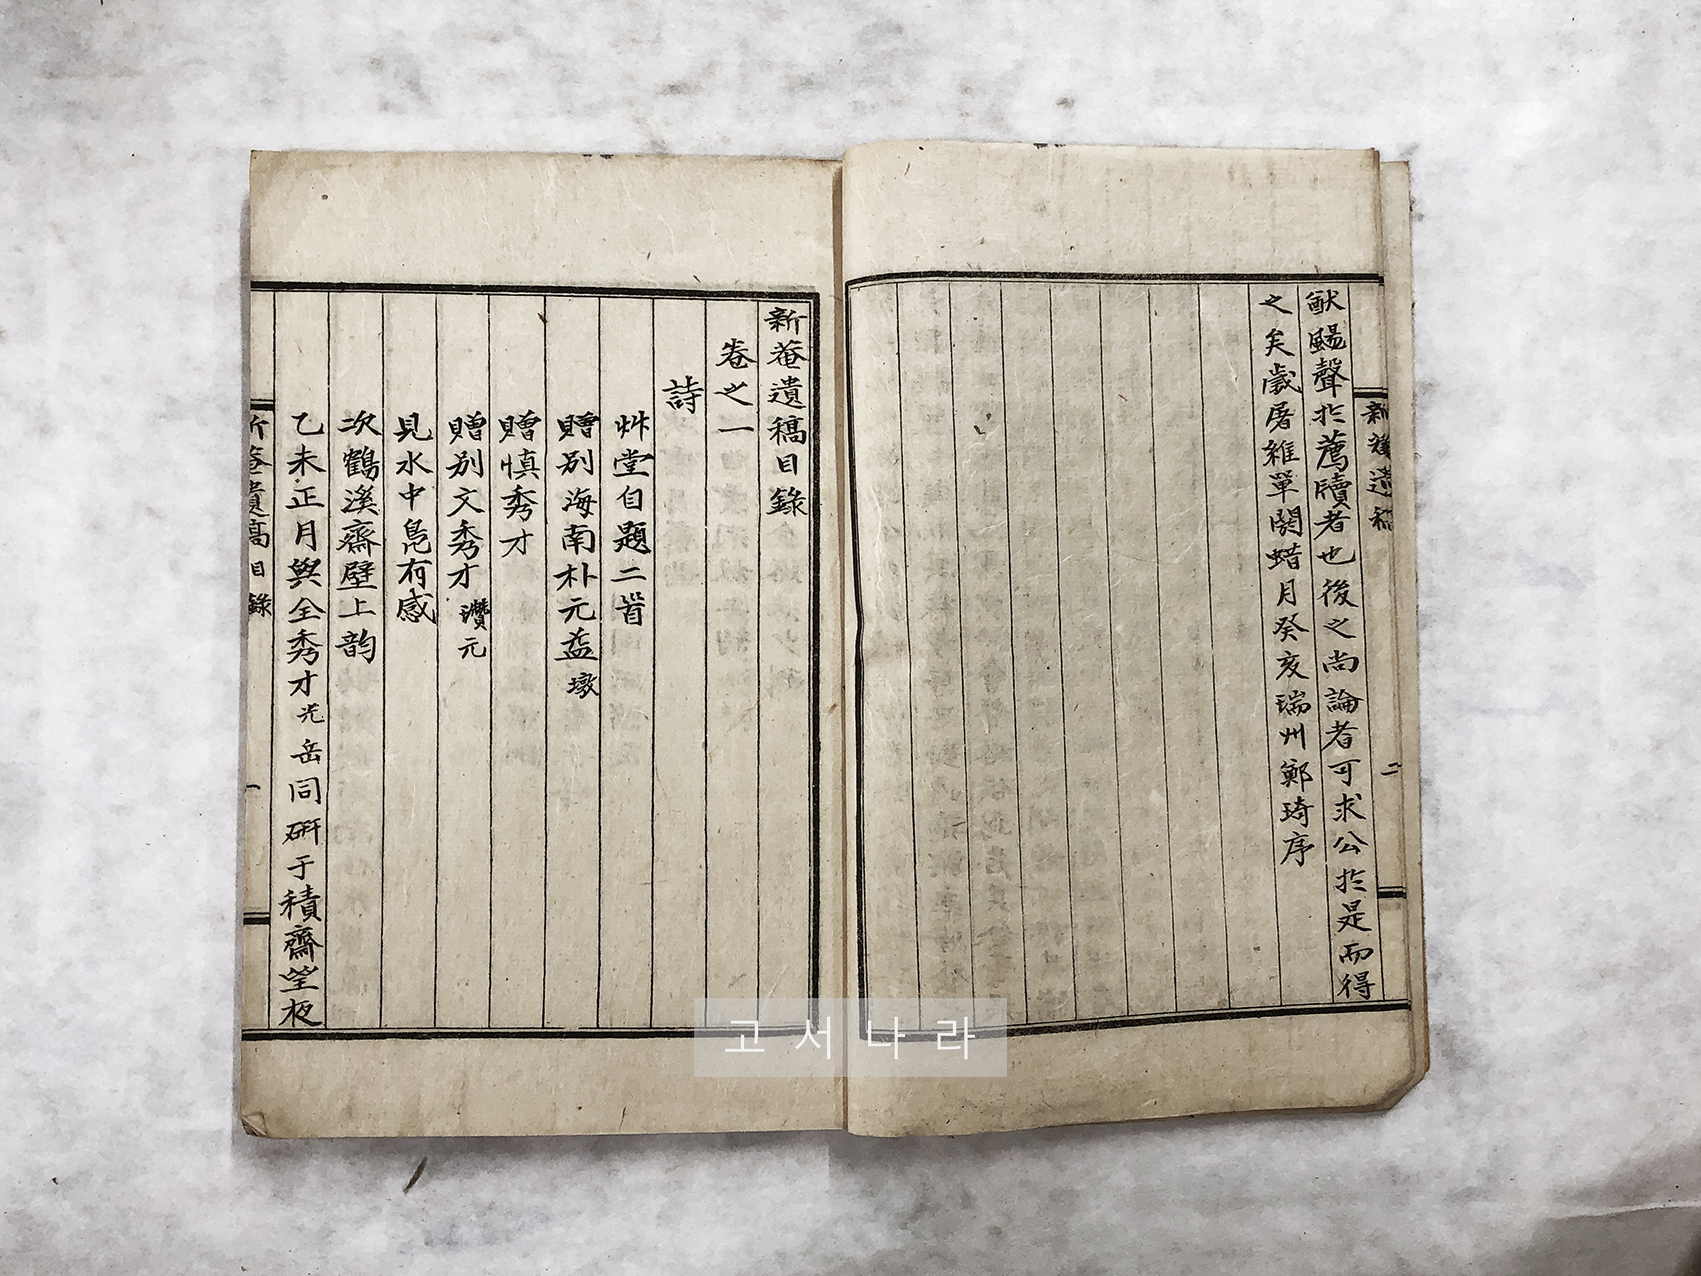 猷颺聲於薦牘者也後之尙論者可求公於是而得
之矣歲屠維單閼蜡月癸亥瑞州鄭琦序
二
新菴遺稿目錄
卷之一
詩
艸堂自題二首
贈别海南朴元益墩
贈愼秀才
贈别文秀才瓚元
見水中鳧有感
次鶴溪齋壁上韵
乙未正月與全秀才光岳同硏于積齋望夜
新菴遺稿目錄
一
고서나라